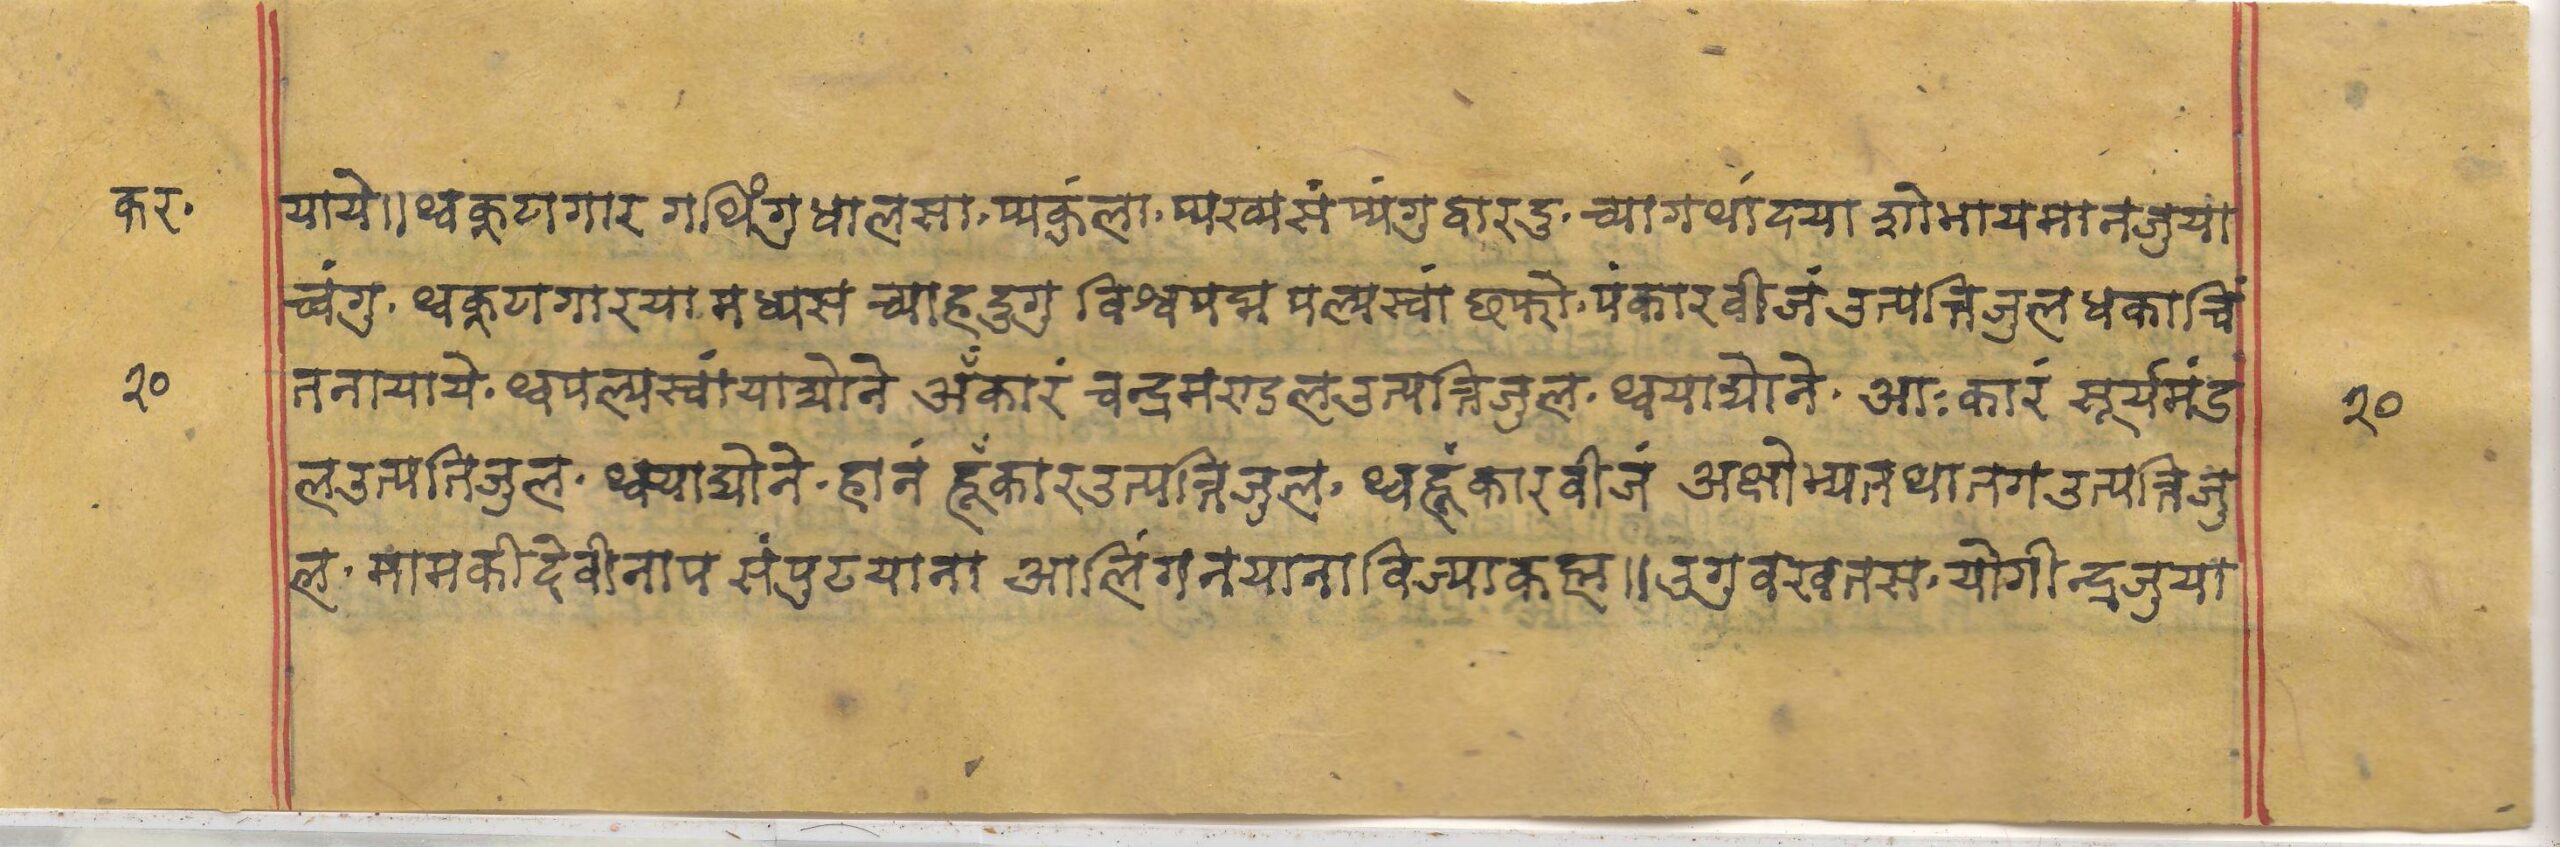 कर.
याये॥थ्वकूटागार गथिंगुधालसा.प्यकुंला.प्यखासं प्यंगुद्वारदु.च्यागर्थांदया शोभायमानजुया
च्वंगु.थ्वकूटागारयामध्यस च्याहदुगु विश्वपद्म पल्यस्वां छफो.पंकारवीजं उत्पत्तिजुलधकाचिं
२० तनायाये.थ्वपल्यस्वांयाद्योने अँकारं चन्द्रमण्डलउत्पत्तिजुल.थ्वयाद्योने.आःकारं सूर्यमंड २०
लउत्पत्तिजुल.थ्वयाद्योने.हानं हूँकारउत्पत्तिजुल.थ्वहूंकारवीजं अक्षोभ्यतथातगउत्पत्तिजु
ल.मामकीदेवीनाप संपुटयाना आलिंगनयानाविज्याकह्म॥उगुवखतस.योगीन्द्रजुया